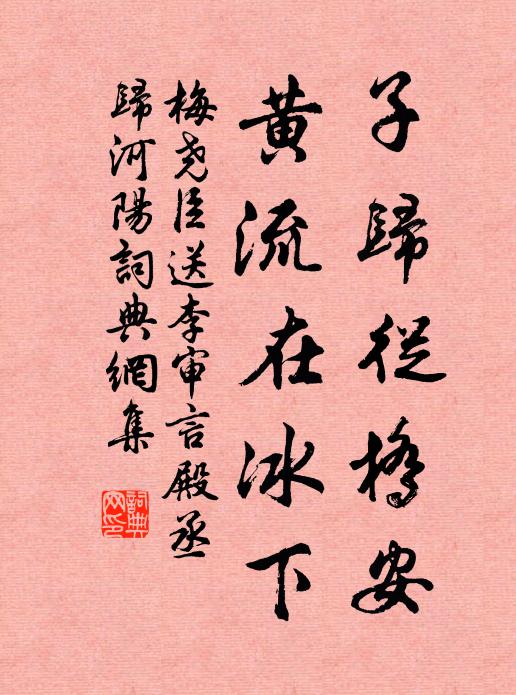 子歸從橋安
黃流在冰下
梅堯臣送李审言殿丞
歸河陽詞典網集
詞典
网印